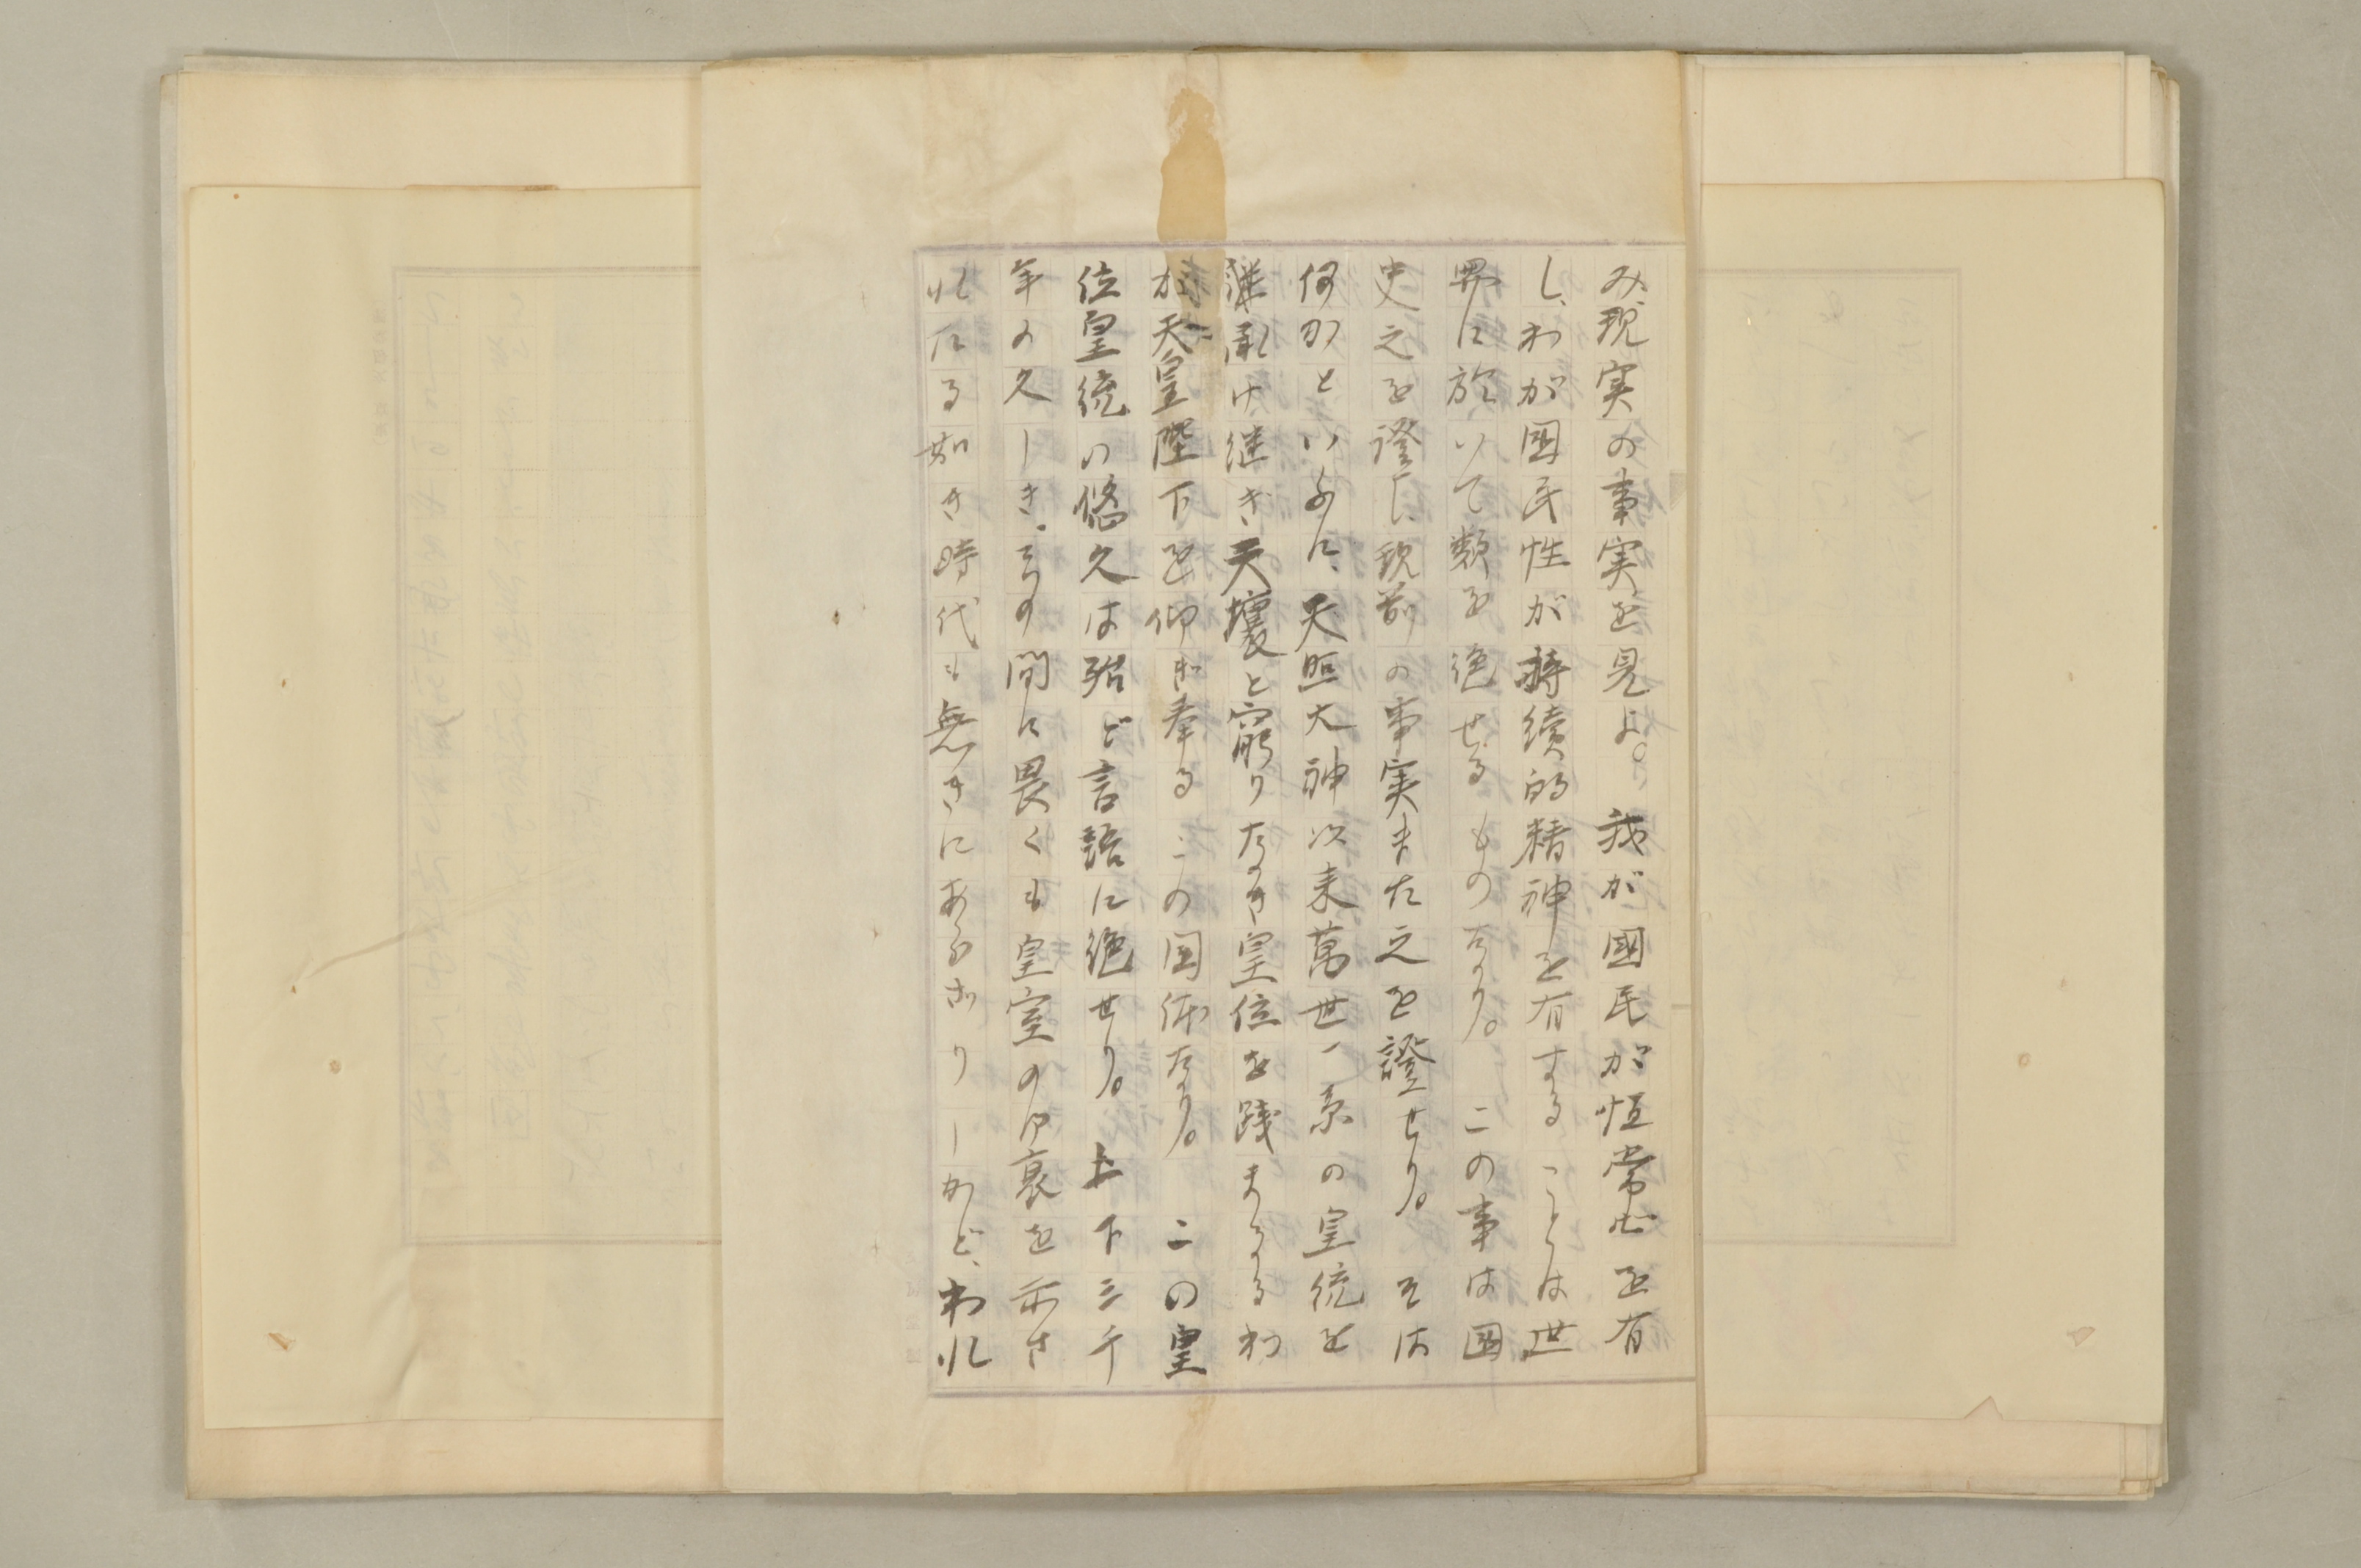 み、現実の事実を見よ。我が國民が恒常心を有
し、わが國民性が持続的精神を有することは世
界に於いて類を絶せるものなり。この事は國
史之を證し、現前の事実また之を證せり。そは
何かといふに、天照大神以来萬世一系の皇統を
承け継ぎ天壤と窮りなき皇位を践まるるわ
が天皇陛下を仰ぎ奉るこの国体なり。この皇
位皇統の悠久は殆ど言語に絶せり。上下三千
年の久しき、その間に畏くも皇室の御衰を示さ
れたる如き時代も無きにあらざりしかど、われ